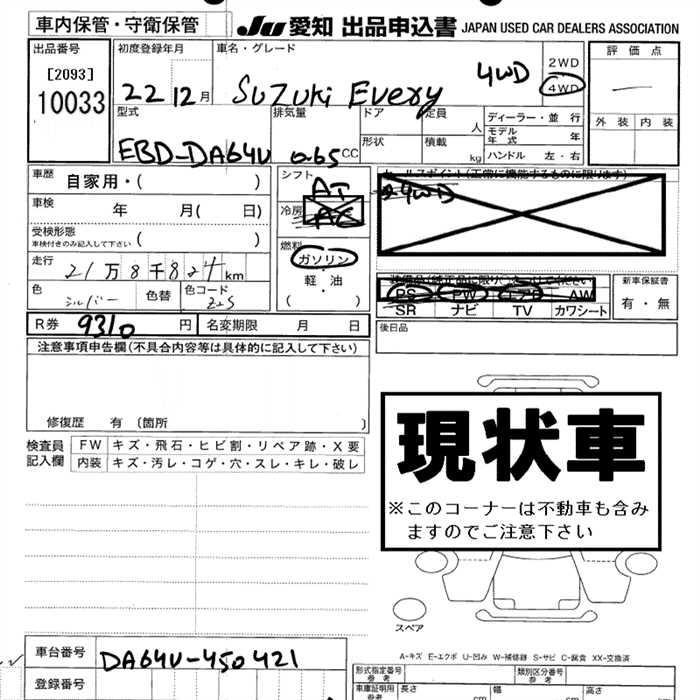 車内保管・守衛保管
JU 愛知 出品申込書 JAPAN USED CAR DEALERS ASSOCIATION
出品番号
[2093]
10033
初度登録年月
22 12月
車名・グレード
Suzuki Every 4WD
2WD
4WD
評価点
外装 内装
型式
EBD-DA64V
排気量
0.65 CC
ドア
定員
人
形状
積載
kg
ディーラー・並行
モデル年式 年
ハンドル 左・右
車歴
自家用・( )
車検
年 月( 日)
受検形態
車検付きのみ記入して下さい ( )
走行
21万8千824km
色
シルバー
色替
色コード
Z2S
シフト
AT
冷房
AC
燃料
ガソリン
・
軽・油
( )
セールスポイント(正常に機能するものに限ります)
4WD
装備品(純正品に限り)○をしてください
PS PW エアB AW
SR ナビ TV カワシート
新車保証書
有・無
後日品
R券 9310 円 名変期限 月 日
注意事項申告欄(不具合内容等は具体的に記入して下さい)
修復歴 有 (箇所 )
検査員
記入欄
FW キズ・飛石・ヒビ割・リペア跡・X要
内装 キズ・汚レ・コゲ・穴・スレ・キレ・破レ
現状車
※このコーナーは不動車も含み
ますのでご注意下さい
スペア
A-キズ E-エクボ U-凹み W-補修跡 S-サビ C-腐食 XX-交換済
車台番号 DA64V-450421
登録番号
形式指定番号 類別区分番号
車庫証明用
長さ cm 幅 cm 高さ cm